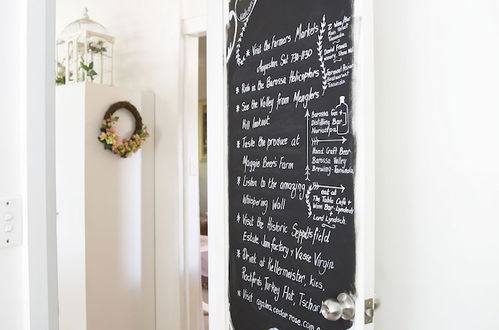 * Visit the Farmers Markets
Angaston Sat 730-1130
* Ride in the Barossa Helicopters
* See the Valley from Menglers
Hill lookout
* Taste the produce at
Maggie Beer's Farm
* Listen to the amazing
Whispering Wall
* Visit the Historic Seppeltsfield
Estate Jam factory & Vasse Virgin
* Drink at Kellermeister, kies,
Rockford, Turkey Flat,
* Visit again
Tanunda
David Franz
Stone Well
Fermont
Restaurant
Tanunda
Barossa Gin &
Distilling Bar
Nuriootpa
Hand Craft Beer
Barossa Valley
Brewing-Tanunda
eat at
The Table
Café &
Wine Bar-Lyndoch
+
Lord Lyndoch